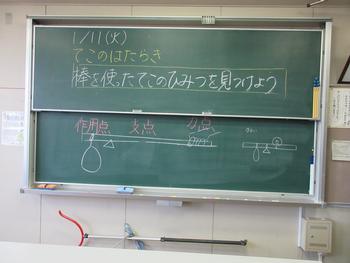 1/11(火)
てこのはたらき
棒を使ったてこのひみつを見つけよう
作用点 支点 力点